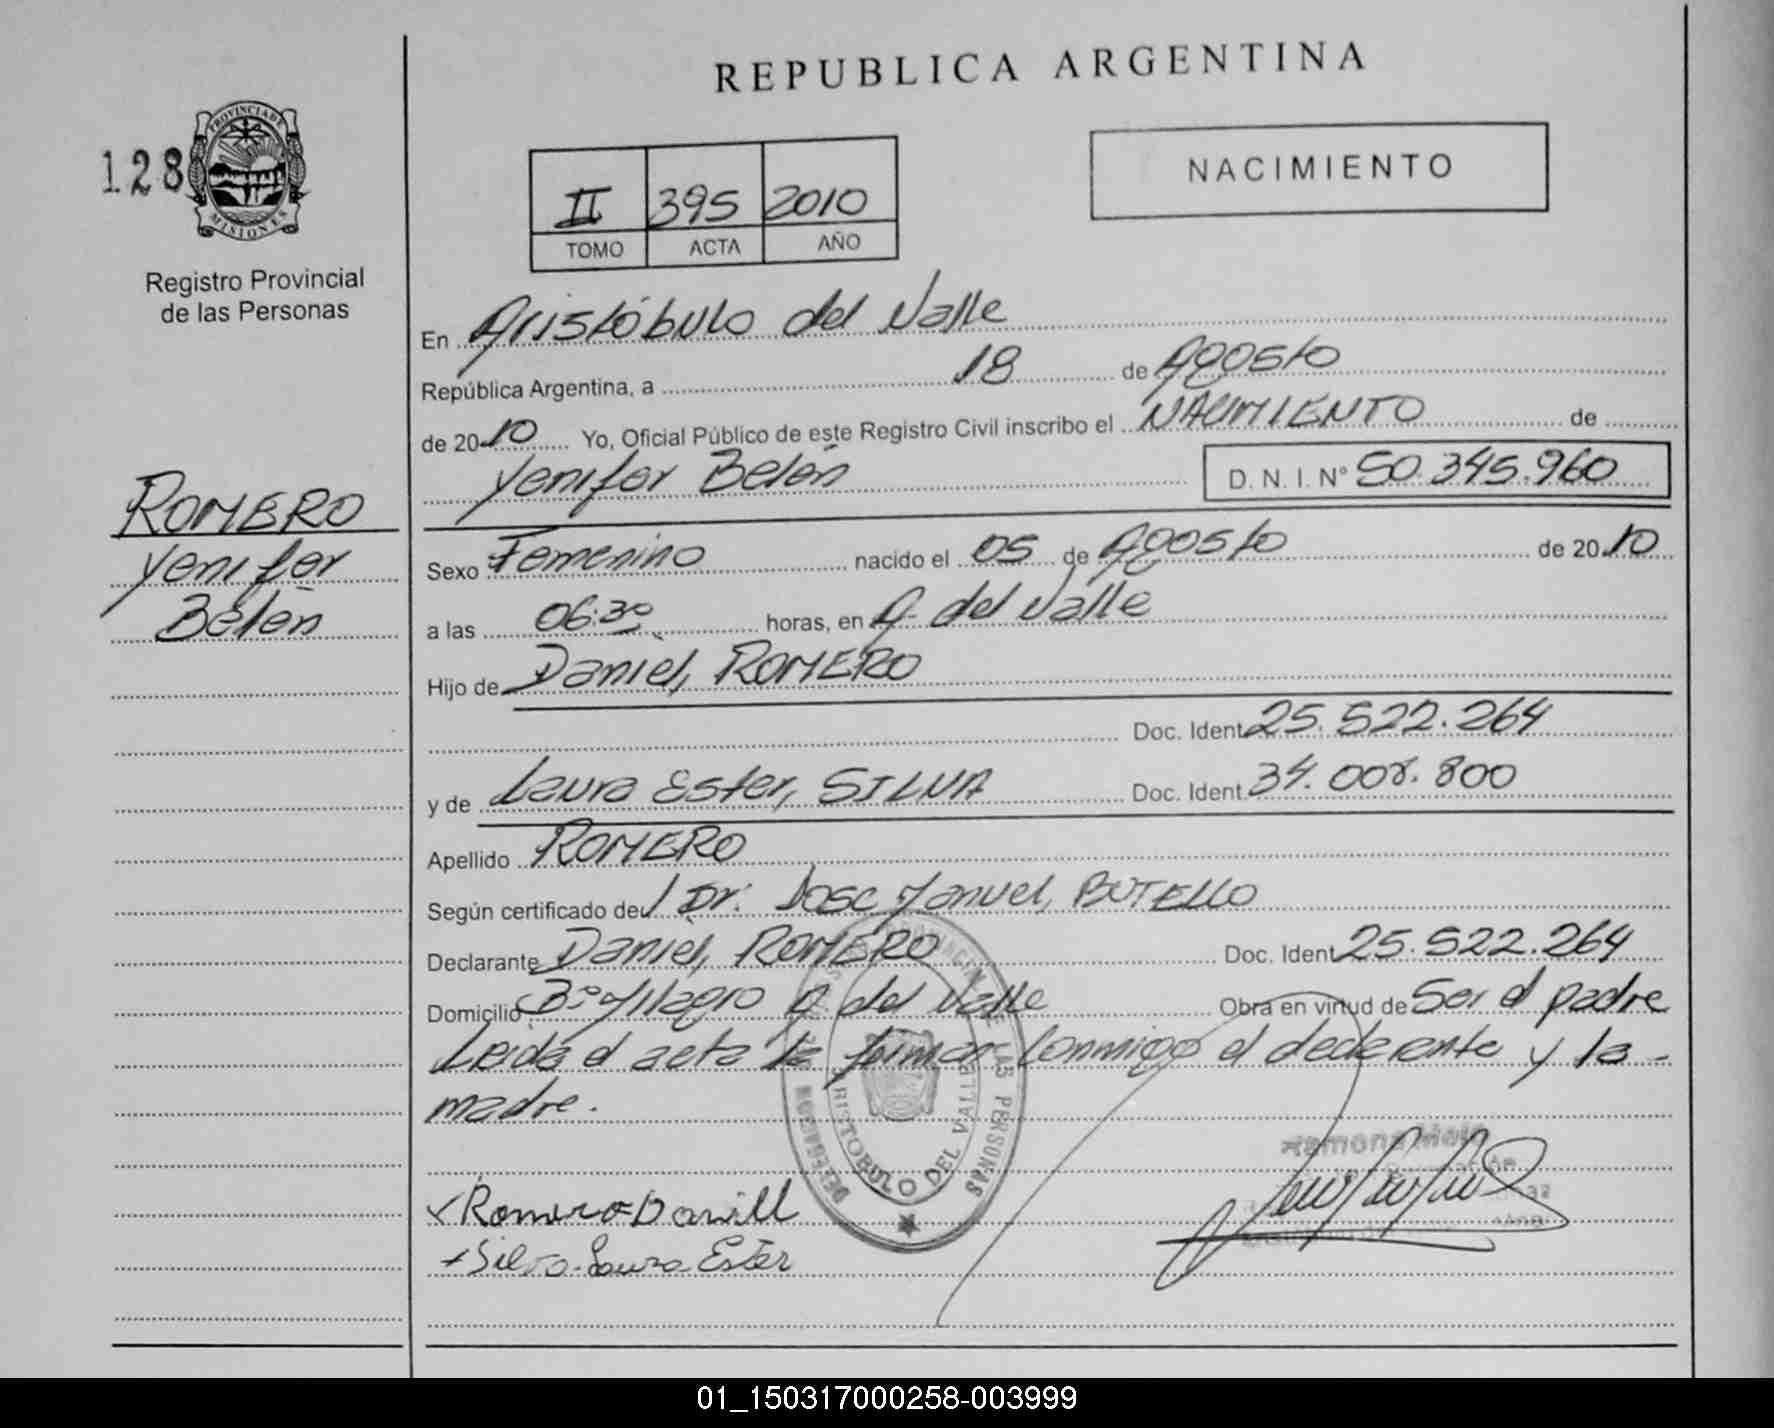 REPUBLICA ARGENTINA
128
PROVINCIA DE
MISIONES
Registro Provincial
de las Personas
II 395 2010
TOMO ACTA AÑO
NACIMIENTO
En Aristóbulo del Valle
República Argentina, a 18 de Agosto
de 2010 Yo, Oficial Público de este Registro Civil inscribo el NACIMIENTO de
Yenifer Belén D. N. I. Nº 50.345.960
ROMERO
Yenifer
Belén
Sexo Femenino nacido el 05 de Agosto de 2010
a las 06:30 horas, en A. del Valle
Hijo de Daniel, ROMERO
Doc. Ident. 25.522.264
y de Laura Ester, SILVA Doc. Ident. 34.008.800
Apellido ROMERO
Según certificado del Dr. Jose Manuel, BOTELLO
Declarante Daniel, ROMERO Doc. Ident. 25.522.264
Domicilio Bº Milagro A. del Valle Obra en virtud de Ser el padre
Leida el acta la firman conmigo el declarante y la
madre.
DE LAS PERSONAS
ARISTOBULO DEL VALLE
Romero Daniel
Silva Laura Ester
Ramona
01_150317000258-003999